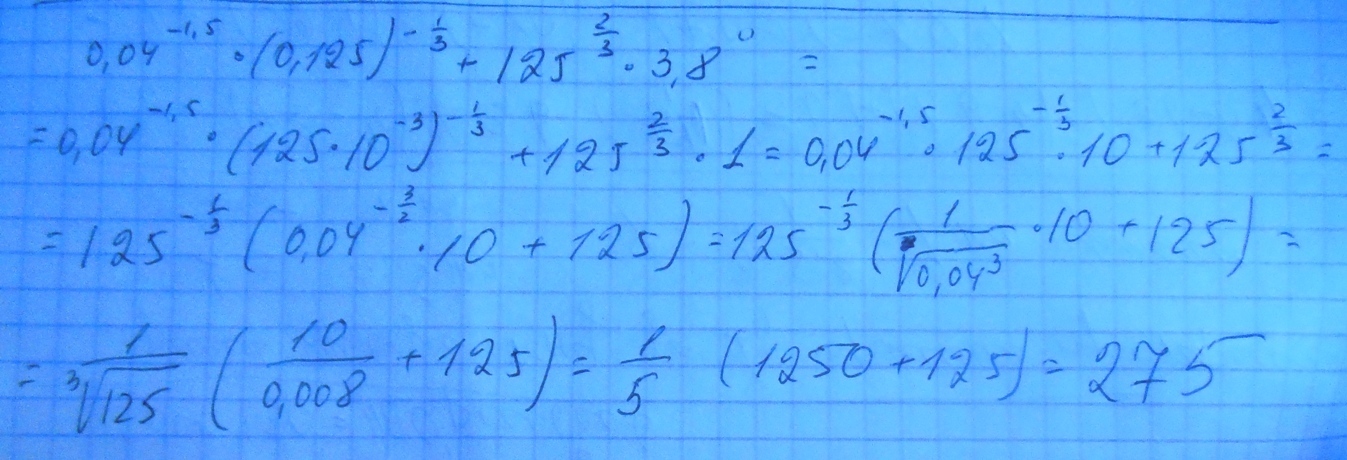 0,04^{-1,5} · (0,125)^{-\frac{1}{3}} + 125^{\frac{2}{3}} · 3,8^{0} =
= 0,04^{-1,5} · (125·10^{-3})^{-\frac{1}{3}} + 125^{\frac{2}{3}} · 1 = 0,04^{-1,5} · 125^{-\frac{1}{3}} · 10 + 125^{\frac{2}{3}} =
= 125^{-\frac{1}{3}} (0,04^{-\frac{3}{2}} · 10 + 125) = 125^{-\frac{1}{3}} (\frac{1}{\sqrt{0,04^{3}}} · 10 + 125) =
= \frac{1}{\sqrt[3]{125}} (\frac{10}{0,008} + 125) = \frac{1}{5} (1250 + 125) = 275